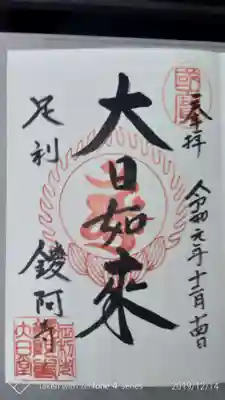 奉拝
令和元年十二月十四日
大日如来
足利 鑁阿寺
大日堂
taken with lone 4 series
2019/12/14